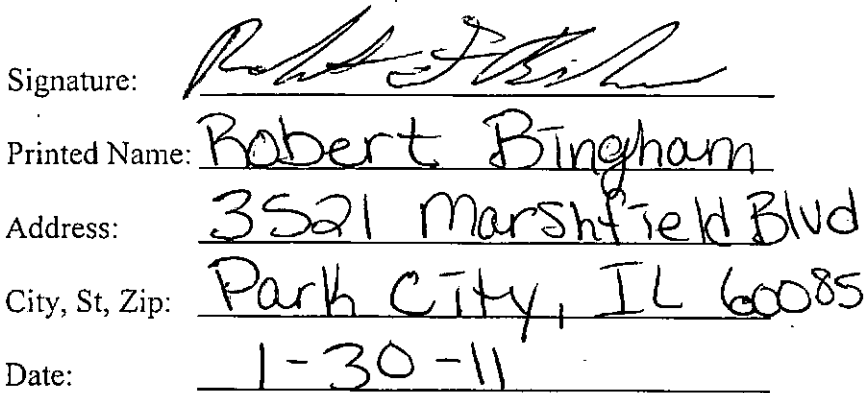 Signature:
Printed Name: Robert Bingham
Address: 3521 Marshfield Blvd
City, St, Zip: Park City, IL 60085
Date: 1-30-11